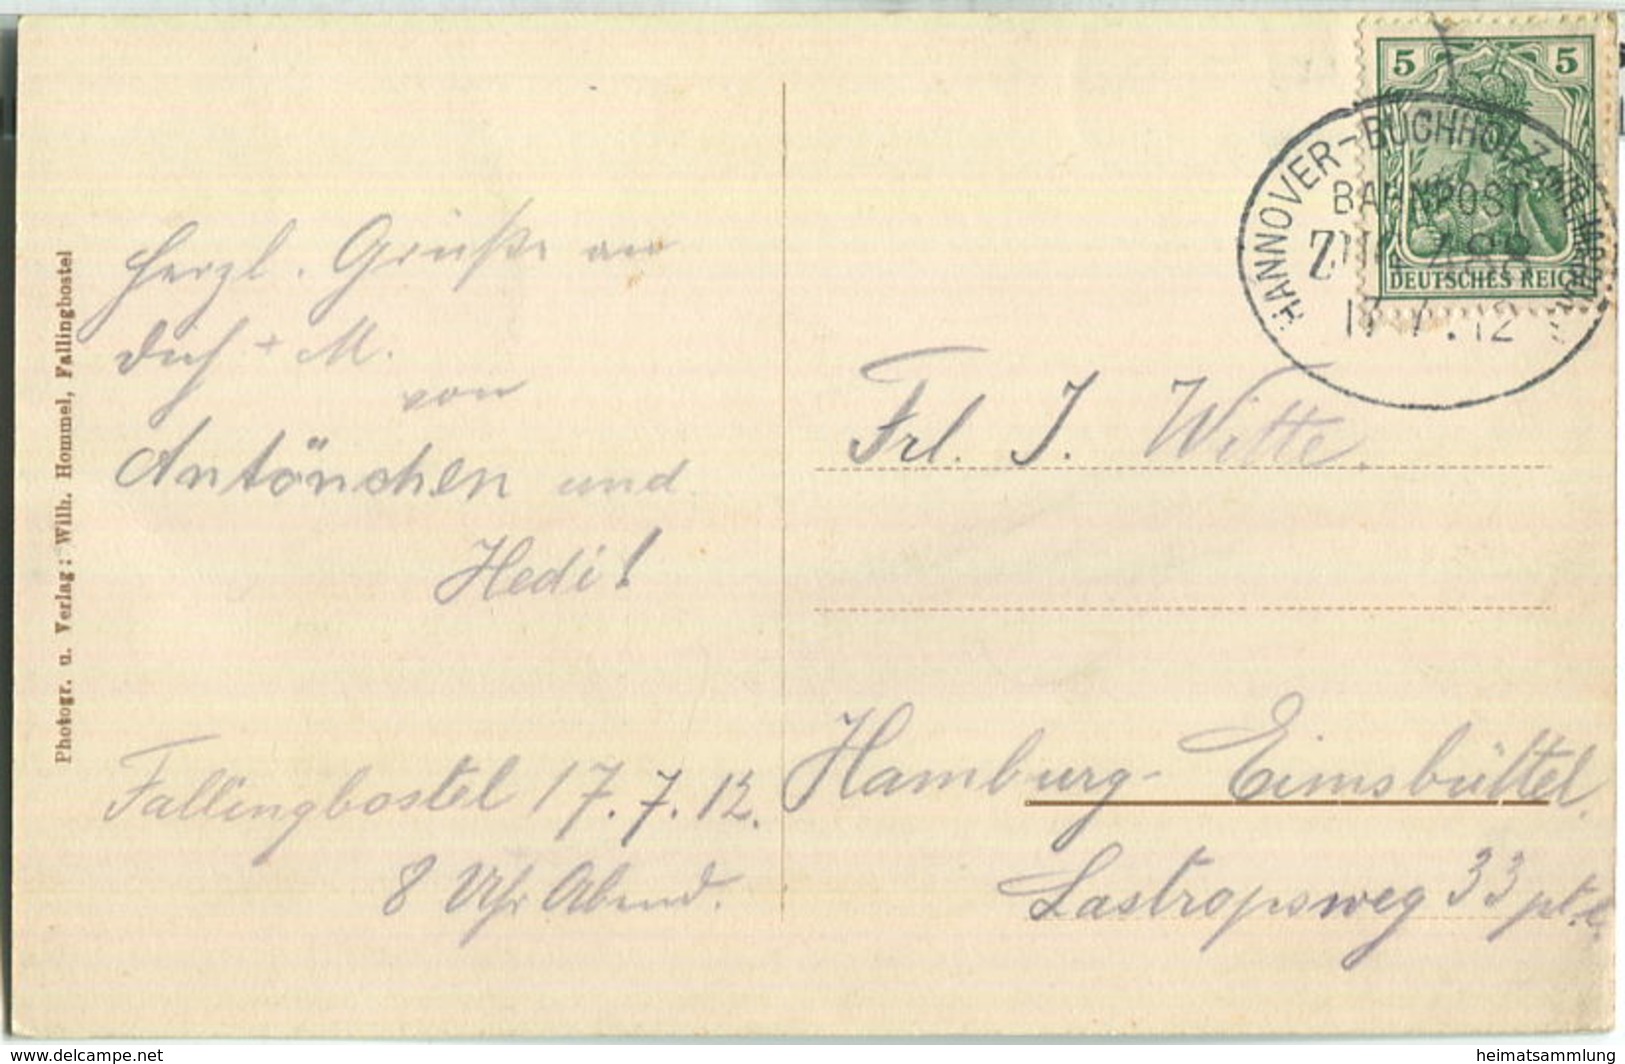 Photogr. u. Verlag: Wilh. Hommel, Fallingbostel
Herzl. Grüße an
dich + M.
von
Antönchen und
Hedi!
Fallingbostel 17.7.12.
8 Uhr Abend.
5 5
DEUTSCHES REICH
HANNOVER-BUCHHOLZ
BAHNPOST
ZUG 788
17.7.12
Frl. J. Witte.
Hamburg-Eimsbüttel.
Lastropsweg 33 pt. l.
www.delcampe.net
heimatsammlung